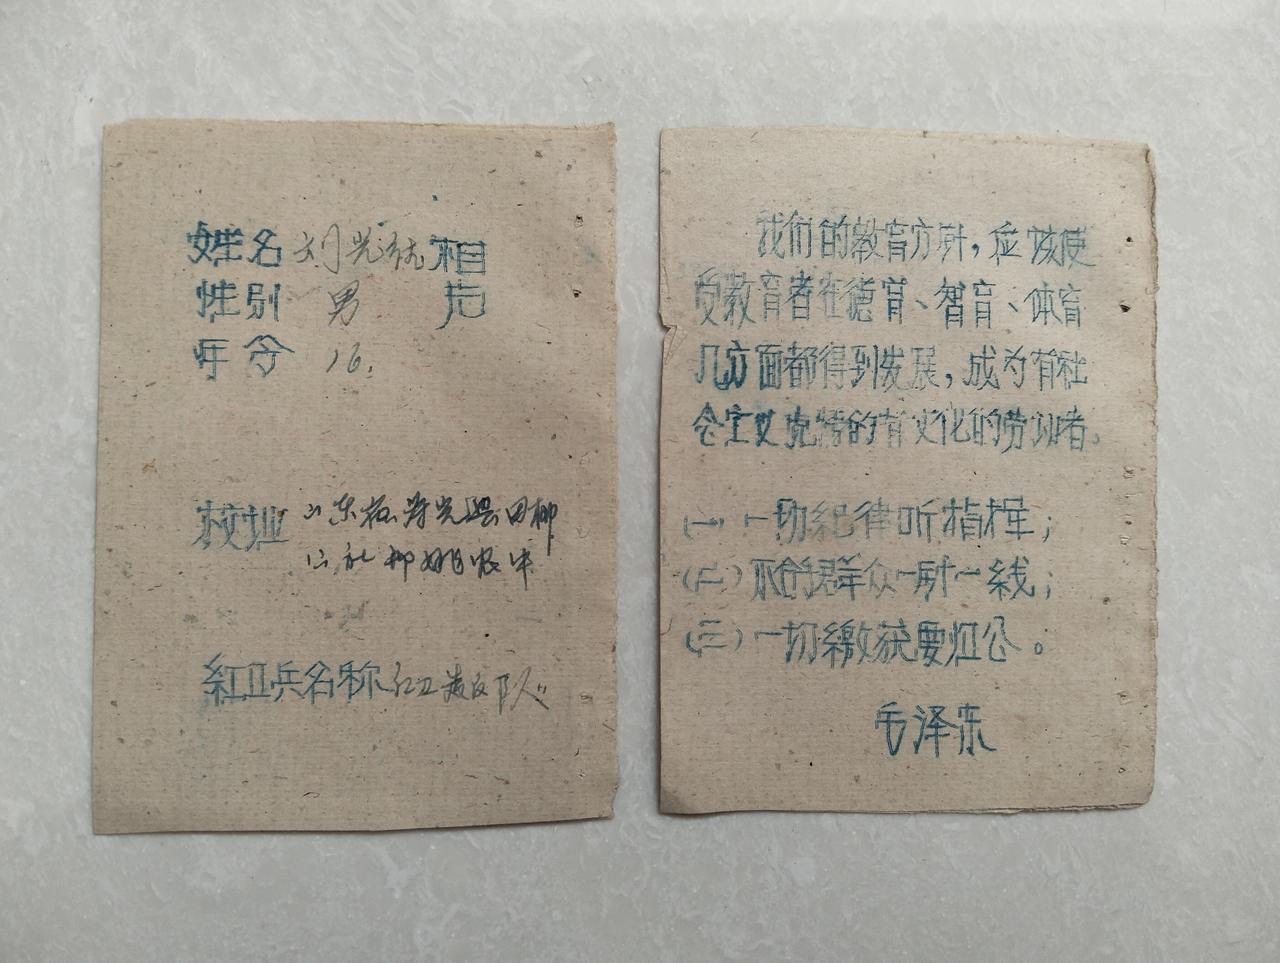 姓名 刘光 相
性别 男 片
年令 16.
校址 山东省寿光县田柳
公社柳姚农中
紅卫兵名称 红卫造反队
我们的教育方针,应该使
受教育者在德育、智育、体育
几方面都得到发展,成为有社
会主义觉悟的有文化的劳动者。
(一) 一切纪律听指挥;
(二) 不的群众一针一线;
(三) 一切繳获要归公。
毛泽东